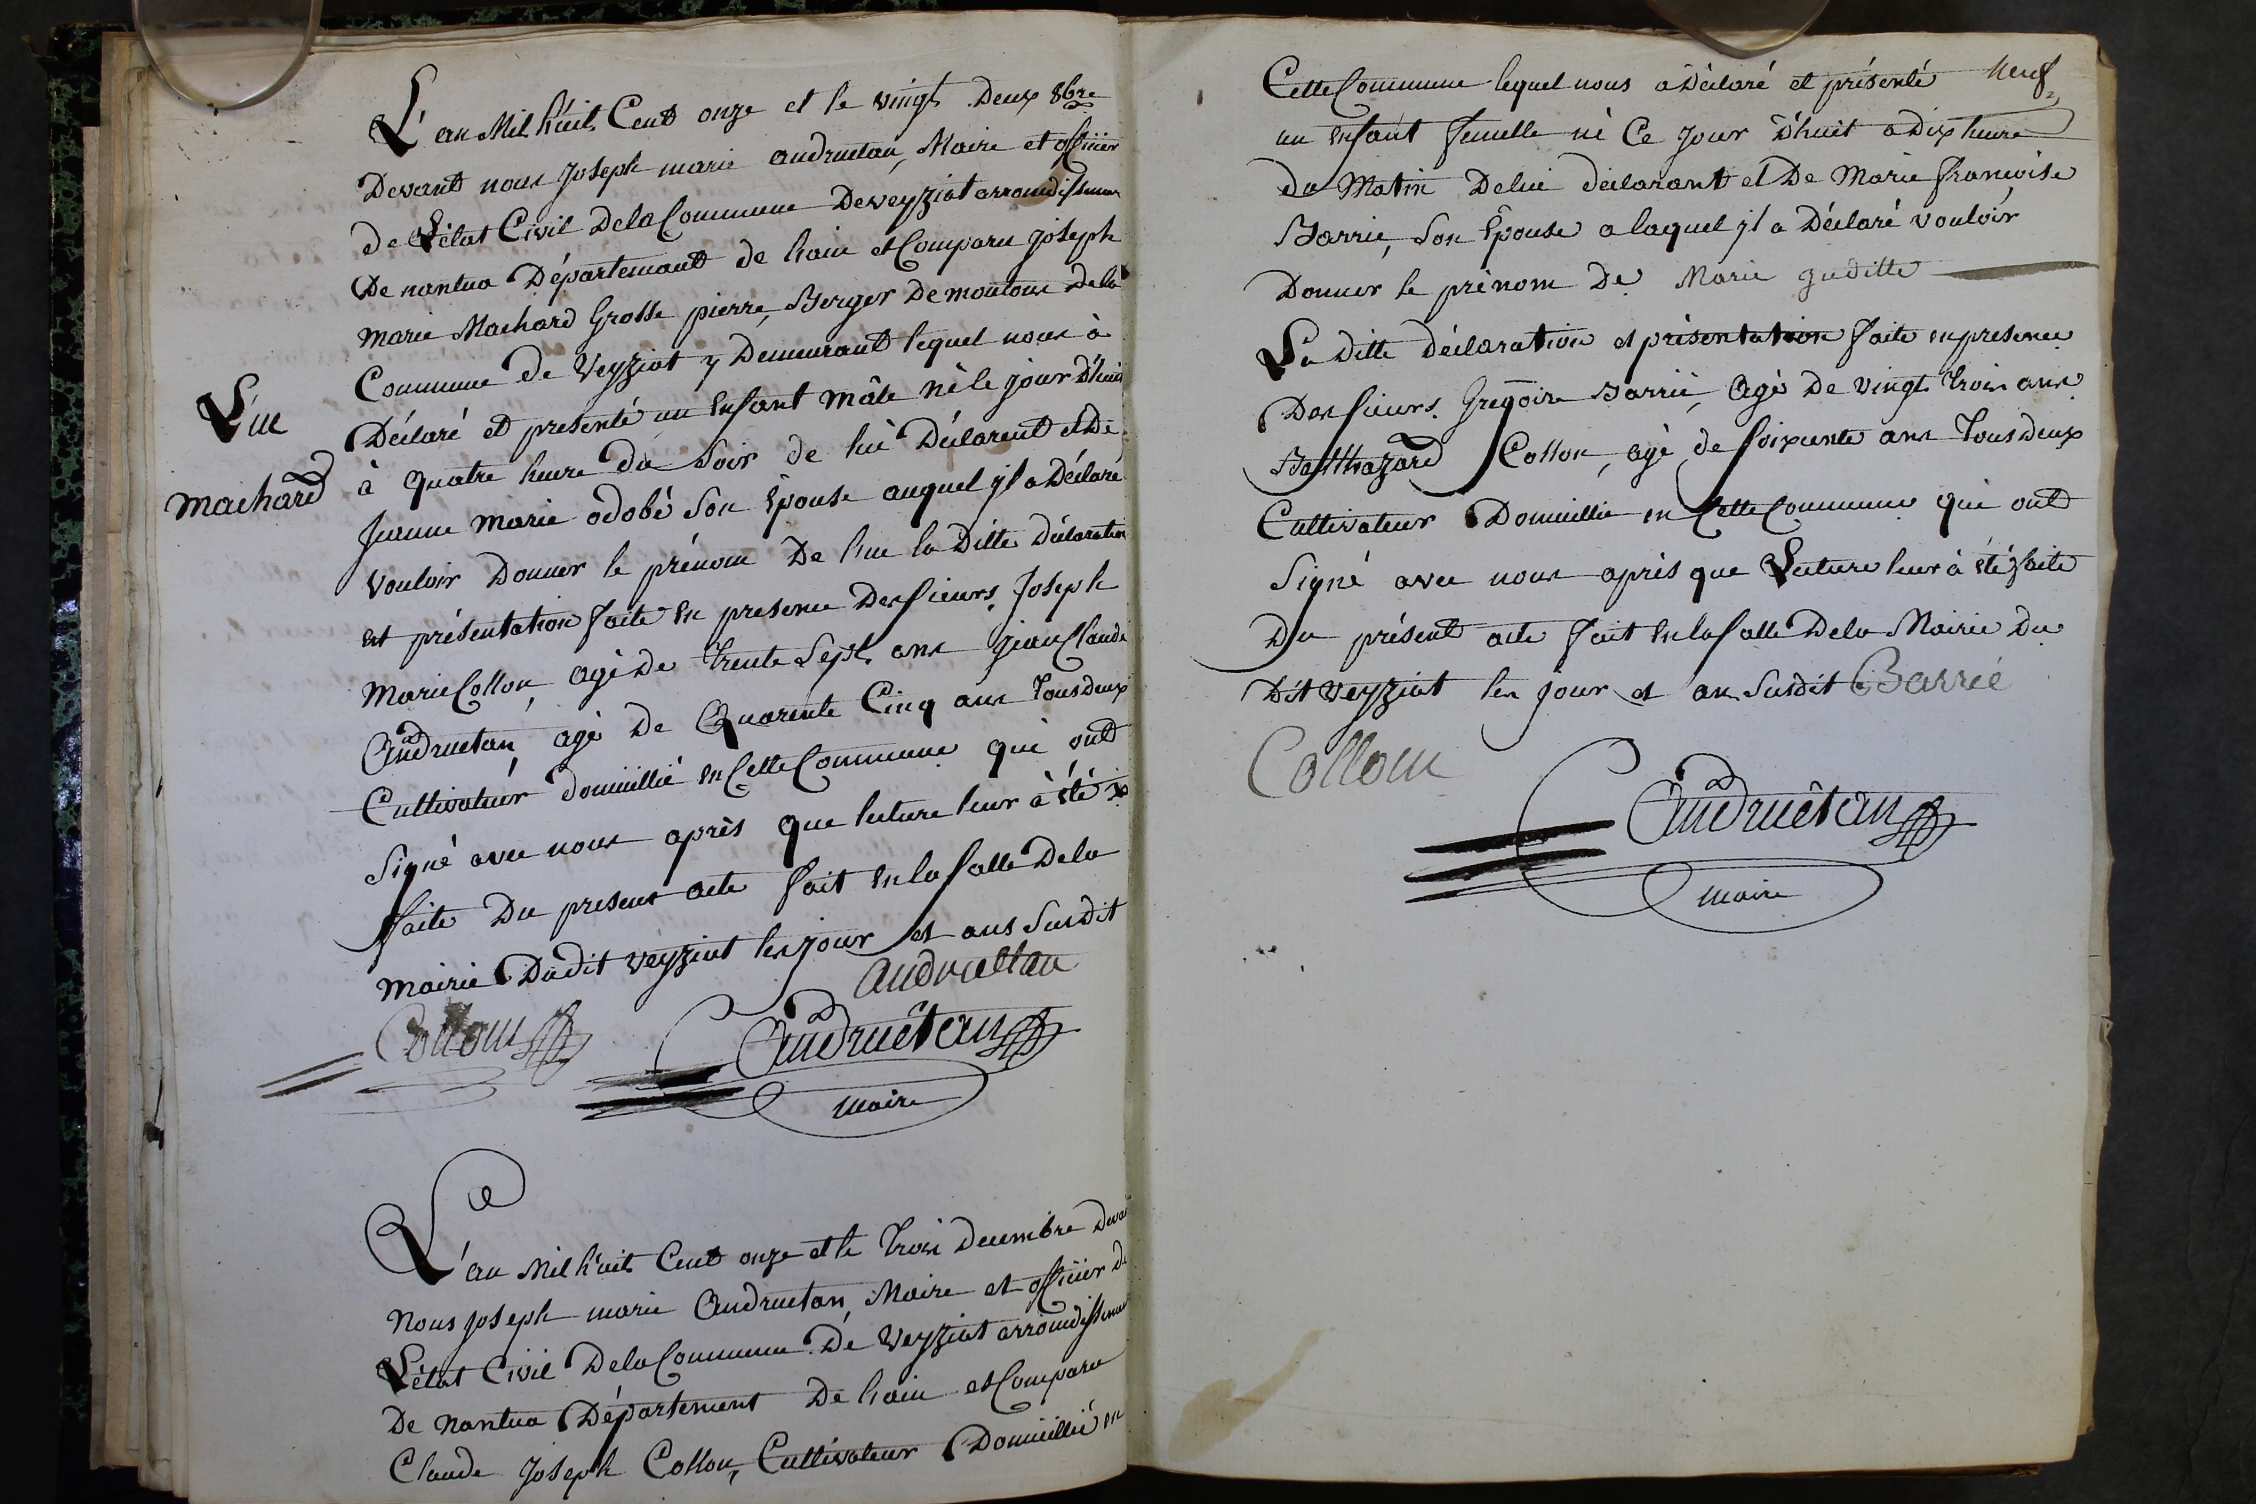 L'an Mil huit Cent onze et le vingt Deux 8bre
Devant nous Joseph marie andruetan, Maire et officier
de L'état Civil Dela Commune De veyziat arrondissemen
De nantua Département de hain est Comparu Joseph
marie Machard Grosse pierre, Berger De moutons Dela
Commune de Veyziat y Demeurant lequel nous à
Déclaré et présenté un Enfant mâle nè le jour D'hui
à quatre heure du Soir de lui Déclarent et De
Jeanne Marie odobé Son Epouse auquel yl a Déclaré
vouloir Donner le prénom De Luc la Ditte Déclaration
Et présentation faite En presence Des sieurs Joseph
Marie Collon, agé De trente Sept ans Jean Claude
Andruetan, agé De Quarente Cinq ans Tous deux
Cultivateur domicillié en Cette Commune qui ont
Signé avec nous après que lecture leur à été
faite Du present acte fait En la salle Dela
Mairie Dudit Veyziat les jour et ans Susdit
Luc
Machard
andruettan
Colloms
Andruêtan
maire
L'an Mil huit Cent onze et le trois Decembre Devan
Nous joseph marie Andruetan, Maire et officier de
L'état Civil Dela Commune De Veyziat arrondissemen
De nantua Département De hain est Comparu
Claude Joseph Collon, Cultivateur Domicillié en
neuf
Cette Commune lequel nous à Déclaré et présenté
un Enfant femelle né Ce jour D'huit a Dix heure
du Matin De lui déclarant et De Marie françoise
Barrié, Son Epouse a laquel yl a Déclaré vouloir
Donner le prénom De Marie juditte
La ditte déclaration et présentation faite en presence
Des sieurs Gregoire Barrié, Agé De vingt trois ans
Balthazard Collon, agé de soixente ans Tous deux
Cultivateur Domicillié en Cette Commune qui ont
Signé avec nous après que Lecture leur à été faite
Du présent acte fait En la salle Dela Mairie Du
Dit Veyziat les jour et an Susdit Barrié
Collom
Andruêtan
maire